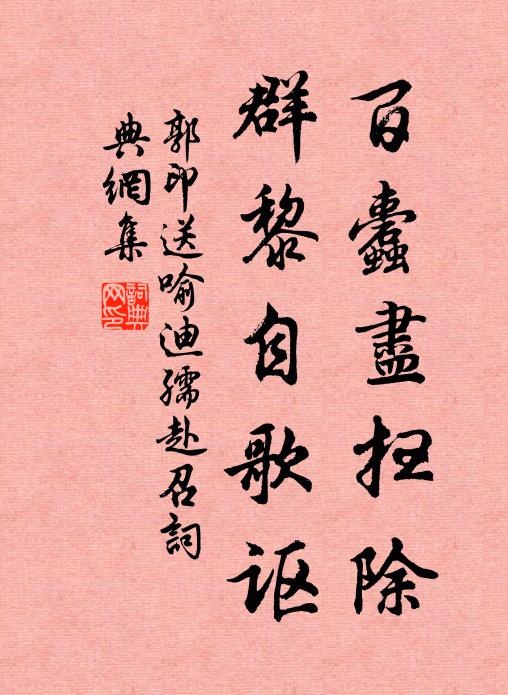 百蠹盡扫除
群黎自歌讴
郭印送喻迪孺赴召詞
典網集
詞典网印